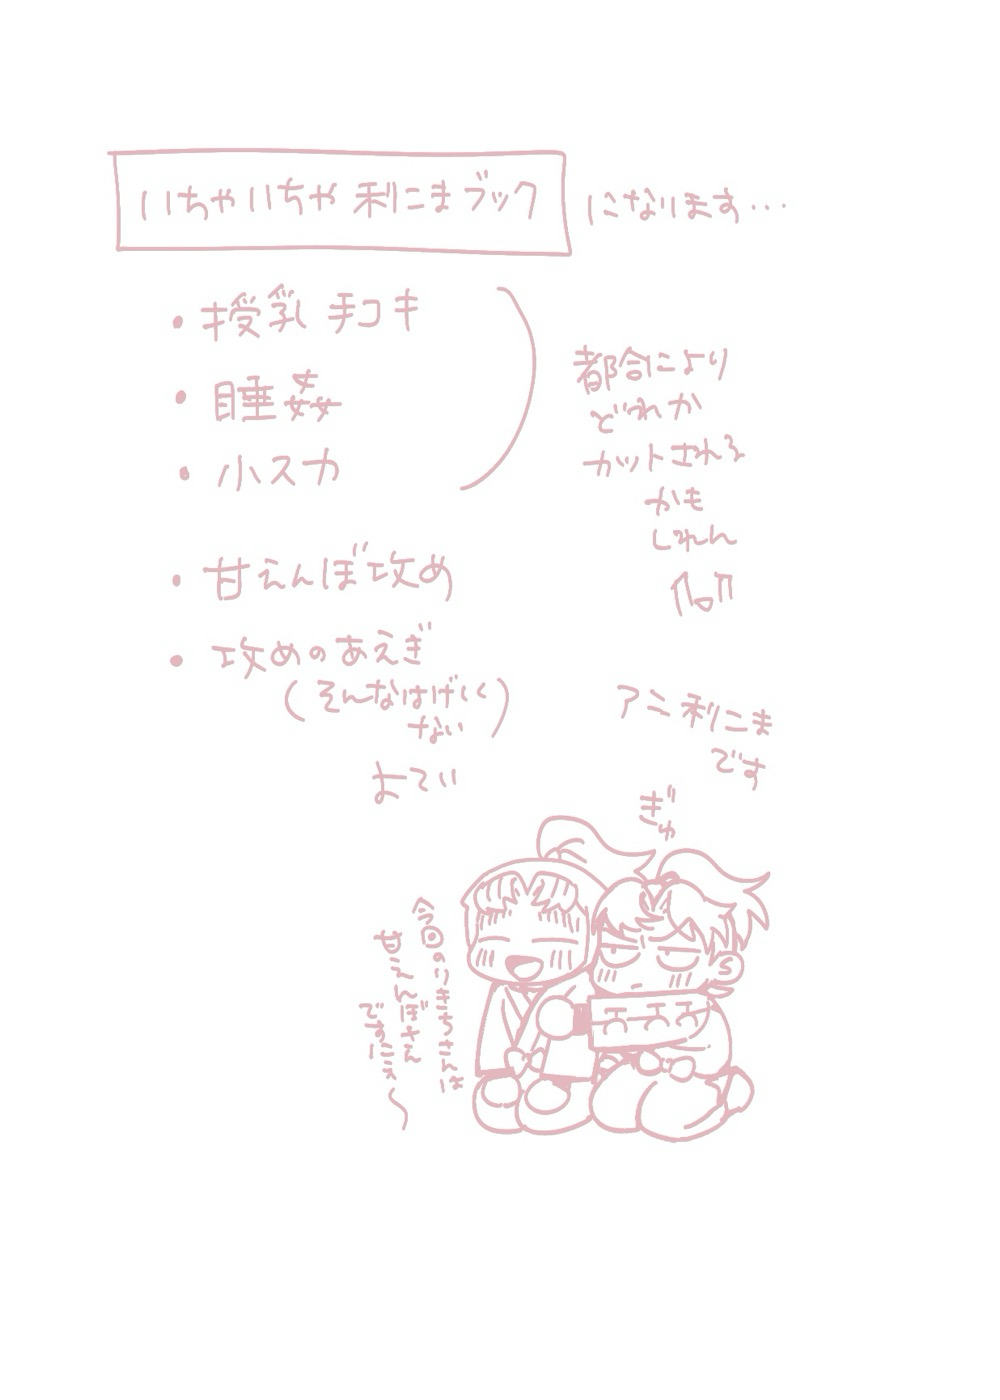 いちゃいちゃ利こまブック になります…
・授乳手コキ
・睡姦
・小スカ
都合により
どれか
カットされる
かも
しれん
・甘えんぼ攻め
・攻めのあえぎ
(そんなはげしく
ない)
よてい
アニ利こま
です
ぎゅ
今回のりきちさんは
甘えんぼさん
ですねえ〜